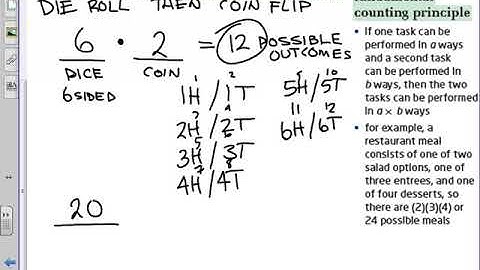 DIE ROLL THEN COIN FLIP
6 · 2 = 12 POSSIBLE OUTCOMES
DICE COIN
6 SIDED
1 2
1H/1T
3 4
2H/2T
5 6
3H/3T
7 8
4H/4T
9 10
5H/5T
11 12
6H/6T
20
fundamental
counting principle
• If one task can be
performed in a ways
and a second task
can be performed in
b ways, then the two
tasks can be performed
in a × b ways
• for example, a
restaurant meal
consists of one of two
salad options, one of
three entrees, and one
of four desserts, so
there are (2)(3)(4) or
24 possible meals